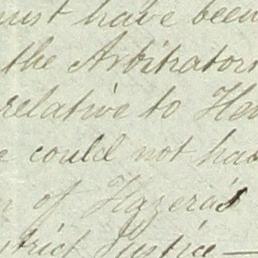 must have been
the Arbitrators
relative to
could not
of Hazera's
Justice —